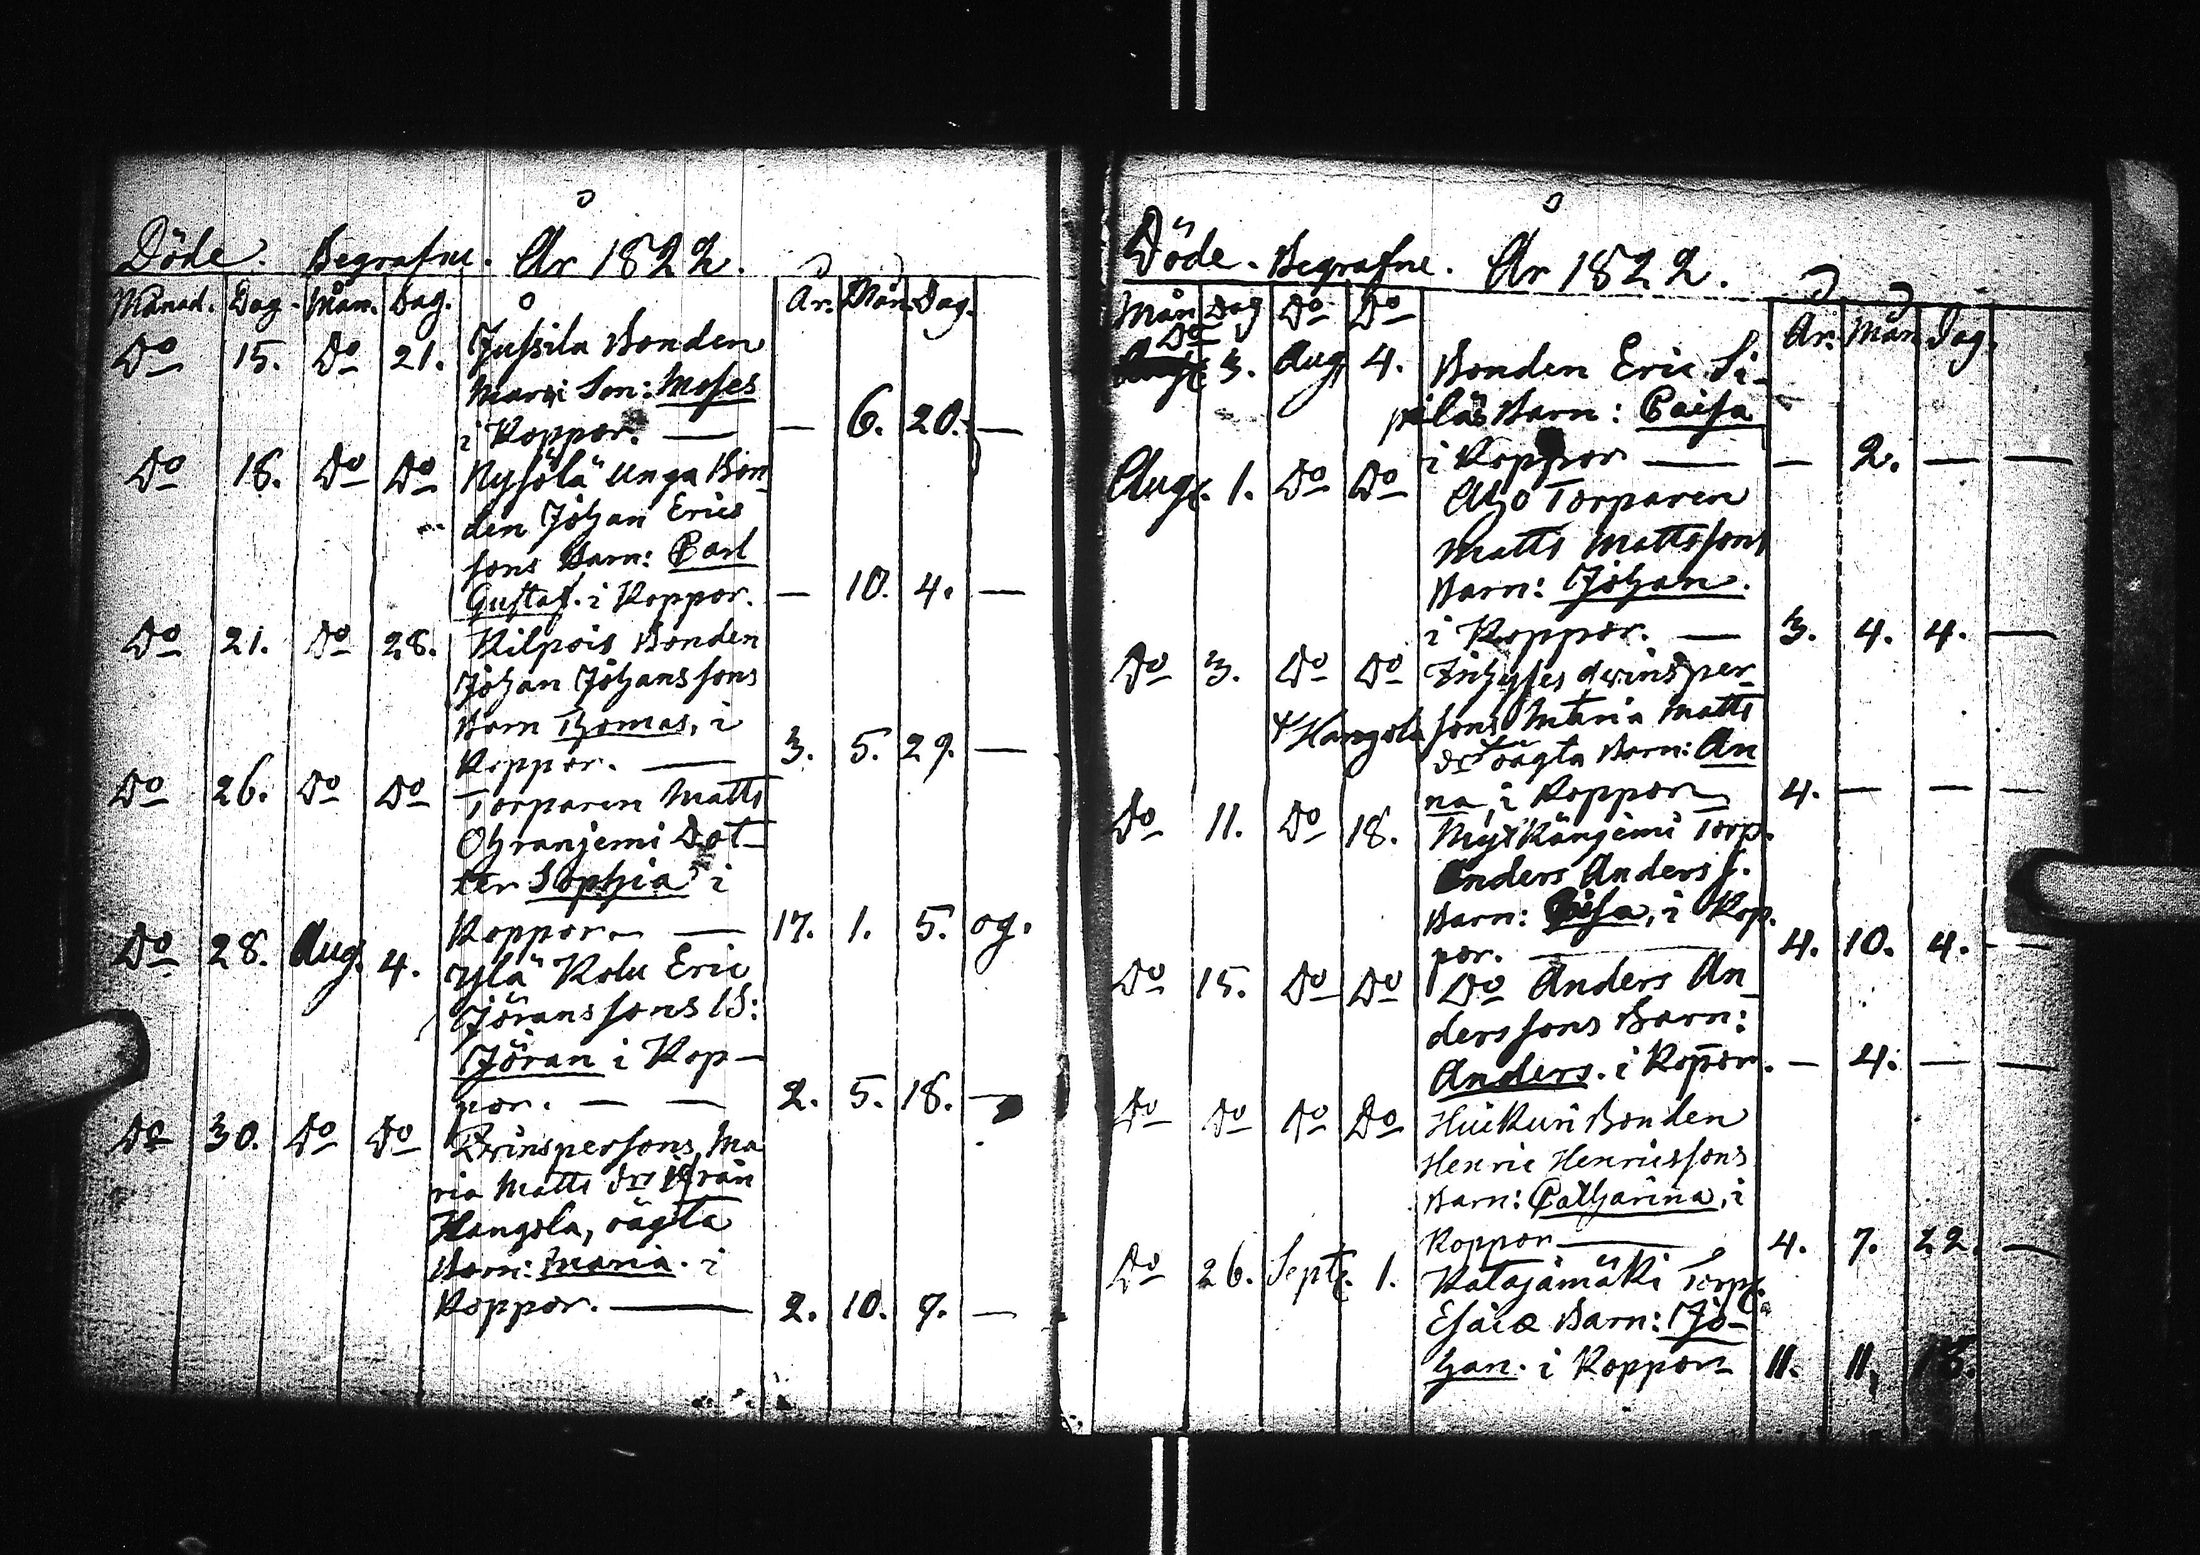 Döde. Begrafne. År 1822.
Månad. Dag. Mån. Dag. År. Mån. Dag.
Do 15. Do 21. Jussila Bonden
Marx Son: Moses
i Koppor. — — 6. 20. —
Do 18. Do Do Nysölä Unga Bon-
den Johan Erics
sons Barn: Carl
Gustaf. i Koppor. — 10. 4. —
Do 21. Do 28. Kilpois Bonden
Johan Johanssons
Barn Thomas, i
Koppor. — 3. 5. 29. —
Do 26. Do Do Torparen Matts
Ohranjemi Dot-
ter Sophia i
Koppor — 17. 1. 5. og.
Do 28. Aug. 4. Ylä Kolu Eric
Jöranssons B:
Jöran i Kop-
por. — — 2. 5. 18. —
Do 30. Do Do Qvinspersons Ma
ria Matts dr från
Hangola, oägta
Barn: Maria. i
Koppor. — 2. 10. 9. —
Döde. Begrafne. År 1822.
Mån Dag Do Do År. Mån Dag.
Do 3. Aug 4. Bonden Eric Si-
piläs Barn: Caisa
i Koppor — — 2. — —
Augt. 1. Do Do Torparen
Matts Mattssons
Barn: Johan.
i Koppor. — 3. 4. 4. —
Do 3. Do Do qvinsper-
+ Hangola sons Maria Matts
dr + oägta Barn: An
na, i Koppor 4. — — —
Do 11. Do 18. Mytkänjemi Torp.
Anders Anders S.
Barn: Caisa, i Kop-
por. — 4. 10. 4. —
Do 15. Do Do Do Anders An-
derssons Barn:
Anders. i Koppor. — 4. — —
Do Do Do Do Huikuri Bonden
Henric Henricssons
Barn: Catharina, i
Koppor — 4. 7. 22. —
Do 26. Sept. 1. Katajamäki Torp.
Esaiæ Barn: Jo-
han. i Koppor 11. 11. 18.